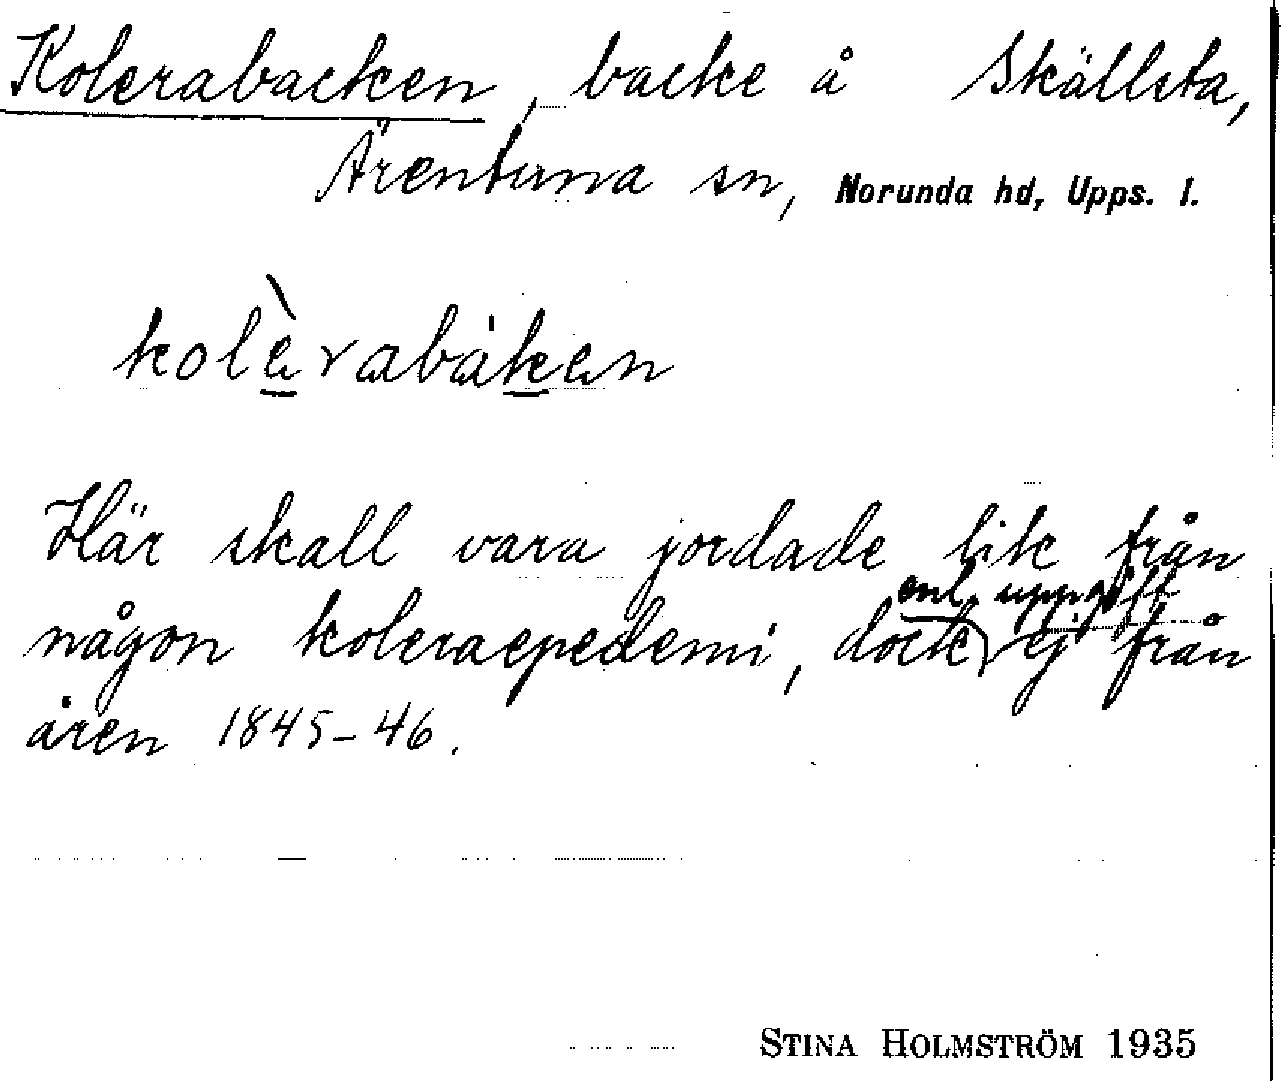 Kolerabacken, backe å Skällsta,
Ärentuna sn, Norunda hd, Upps. l.
kolèrabaken
Här skall vara jordade lik från
någon koleraepedemi, dock enl. uppgift ej från
åren 1845-46.
STINA HOLMSTRÖM 1935